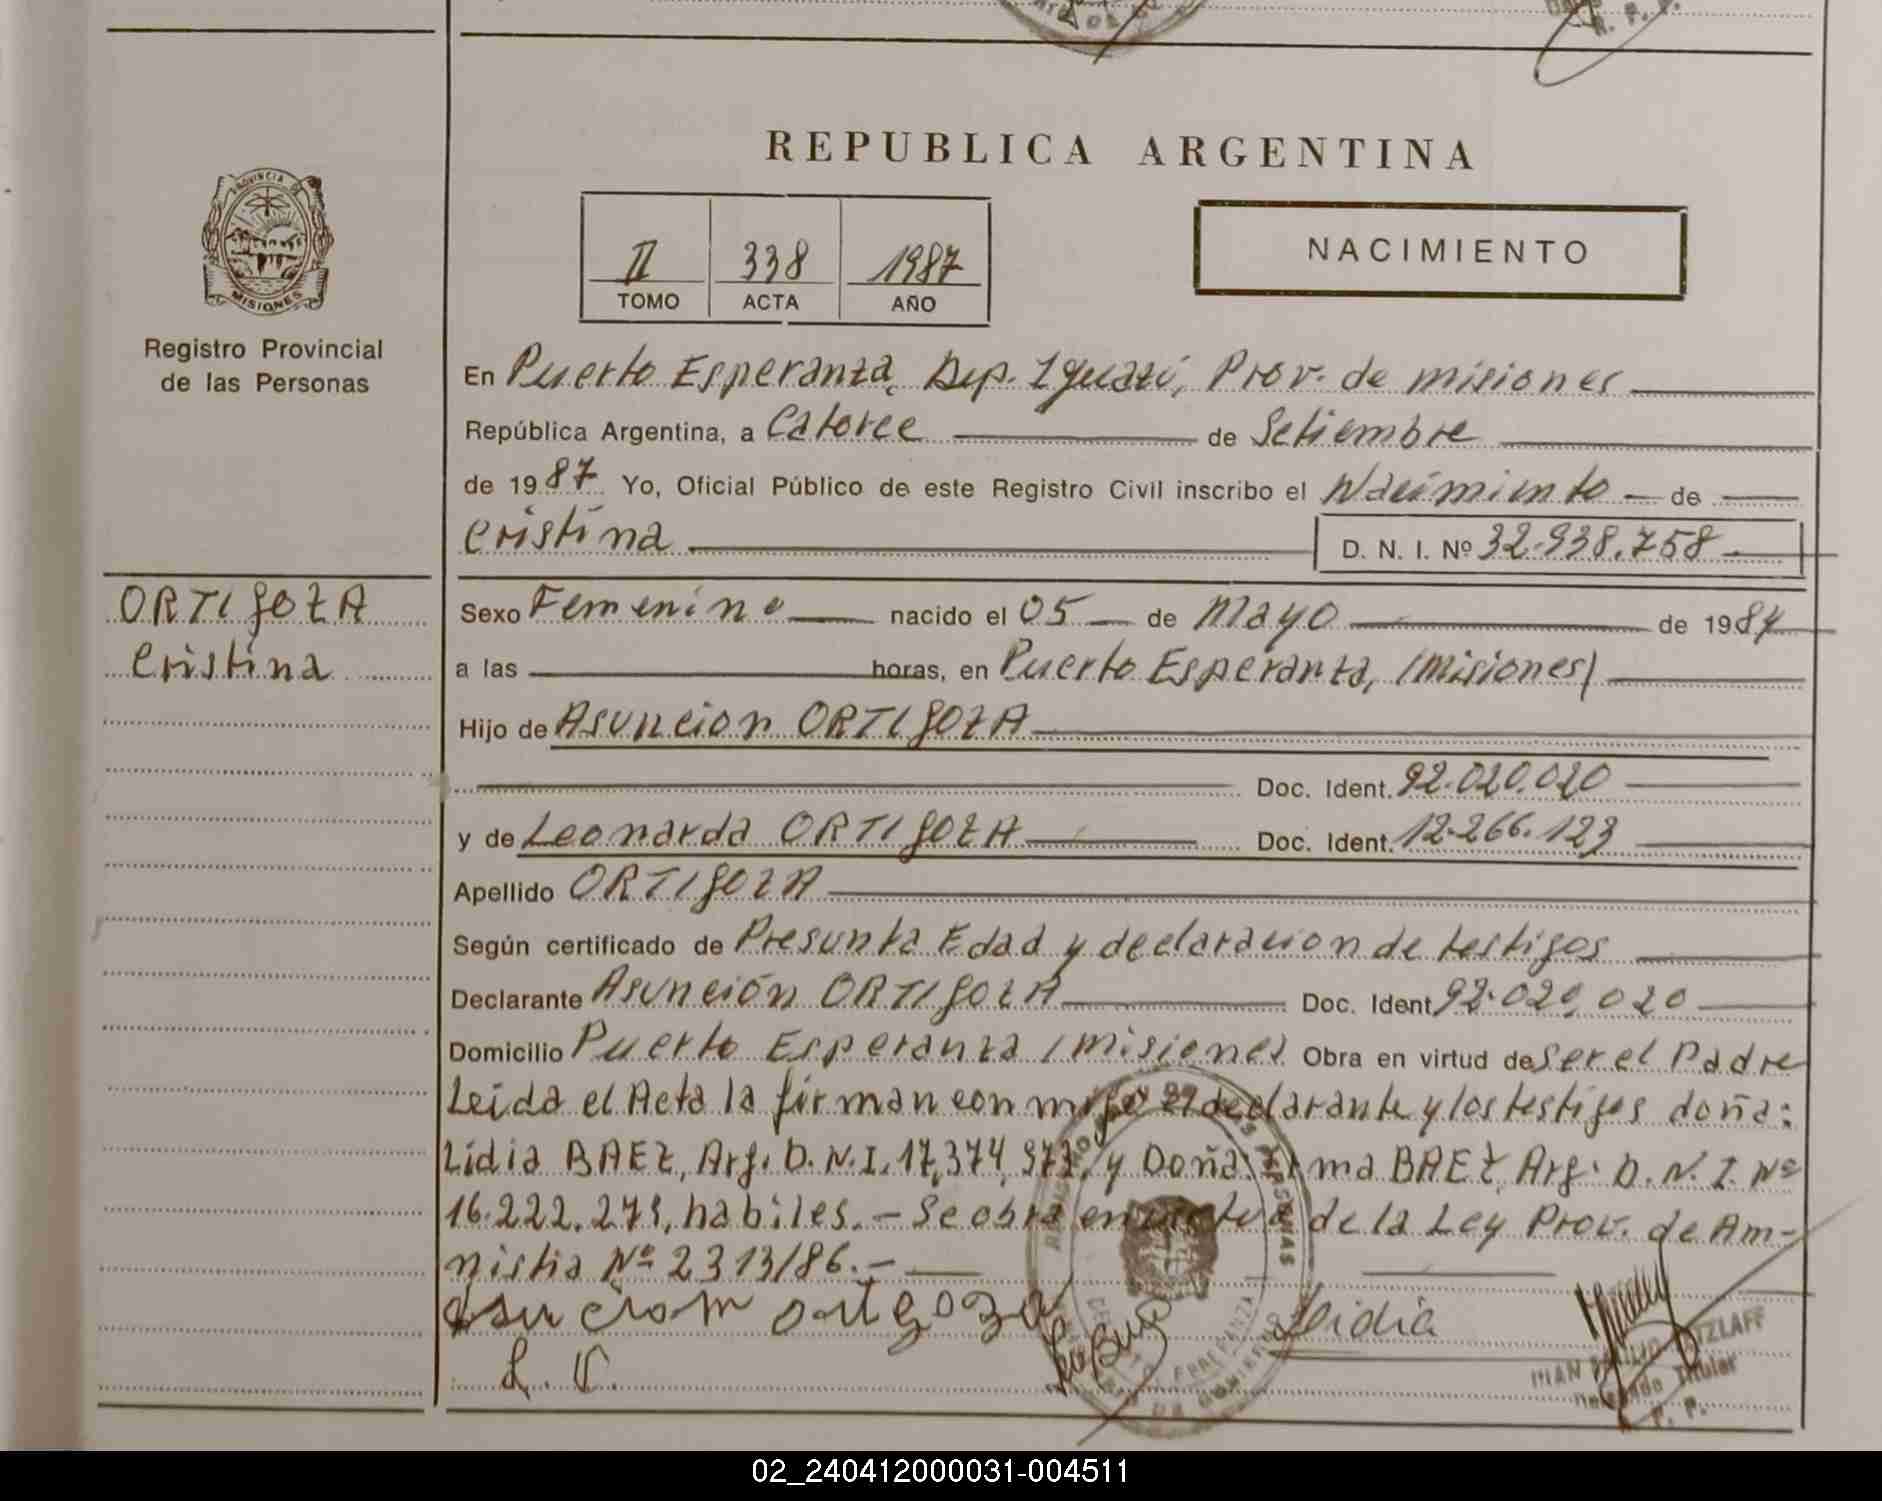 REPUBLICA ARGENTINA
PROVINCIA DE
MISIONES
Registro Provincial
de las Personas
II 338 1987
TOMO ACTA AÑO
NACIMIENTO
En Puerto Esperanza, Dep. Iguazú, Prov. de misiones
República Argentina, a Catorce de Setiembre
de 1987 Yo, Oficial Público de este Registro Civil inscribo el Nacimiento de
Cristina D. N. I. Nº 32.938.758
ORTIGOZA
Cristina
Sexo Femenino nacido el 05 de Mayo de 1984
a las horas, en Puerto Esperanza, (Misiones)
Hijo de Asuncion ORTIGOZA
Doc. Ident. 92.020.020
y de Leonarda ORTIGOZA Doc. Ident. 12.266.123
Apellido ORTIGOZA
Según certificado de Presunta Edad y declaracion de testigos
Declarante Asunción ORTIGOZA Doc. Ident 92.020.020
Domicilio Puerto Esperanza (Misiones) Obra en virtud de Ser el Padre
Leida el Acta la firman conmigo el declarante y los testigos doña:
Lidia BAEZ, Arg. D.N.I. 17.374.973, y Doña Irma BAEZ, Arg. D.N.I. Nº
16.222.279, habiles.- Se obra en virtud de la Ley Prov. de Am-
nistia Nº 2313/86.-
asuciom ortegoza
Lidia
Delegado Titular
R. P. P.
02_240412000031-004511